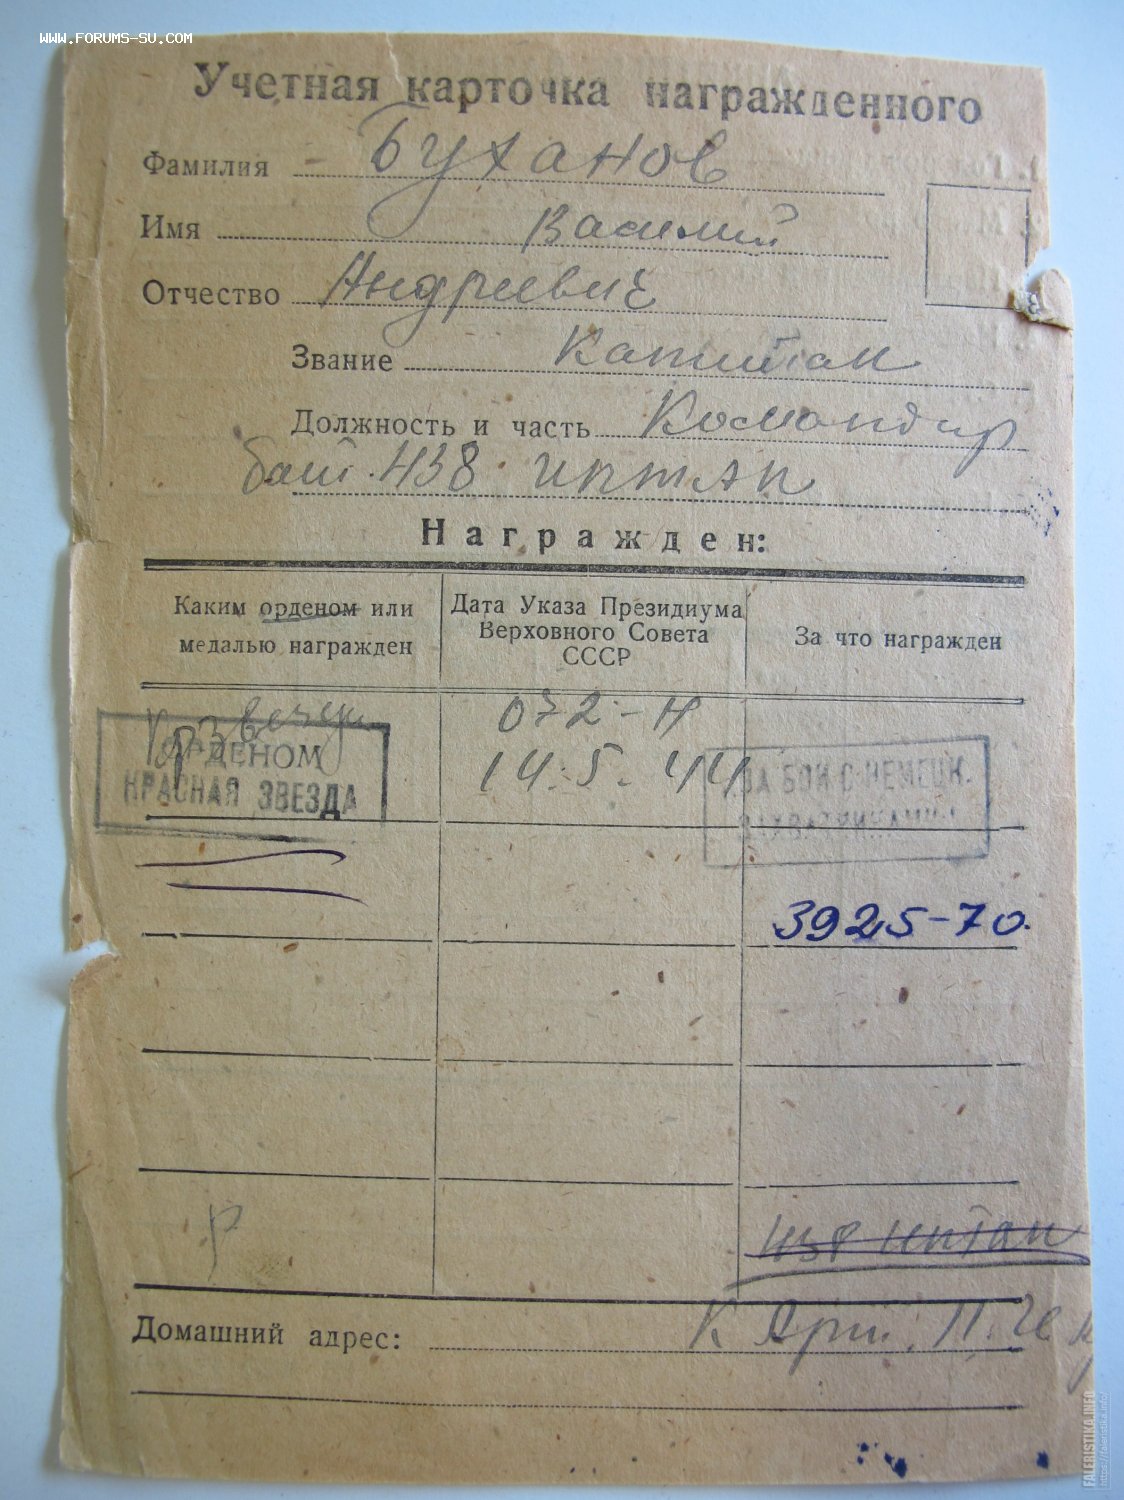 WWW.FORUMS-SU.COM
Учетная карточка награжденного
Фамилия Буханов
Имя Василий
Отчество Андреевич
Звание Капитан
Должность и часть Командир
бат. 438 иптап
Награжден:
Каким орденом или медалью награжден
Дата Указа Президиума Верховного Совета СССР
За что награжден
Кр звезду 072-н
ОРДЕНОМ 14.5.44 ЗА БОИ С НЕМЕЦК.
КРАСНАЯ ЗВЕЗДА ЗАХВАТЧИКАМИ
3925-70.
438 иптап
Домашний адрес:
FALERISTIKA.INFO
https://faleristika.info/